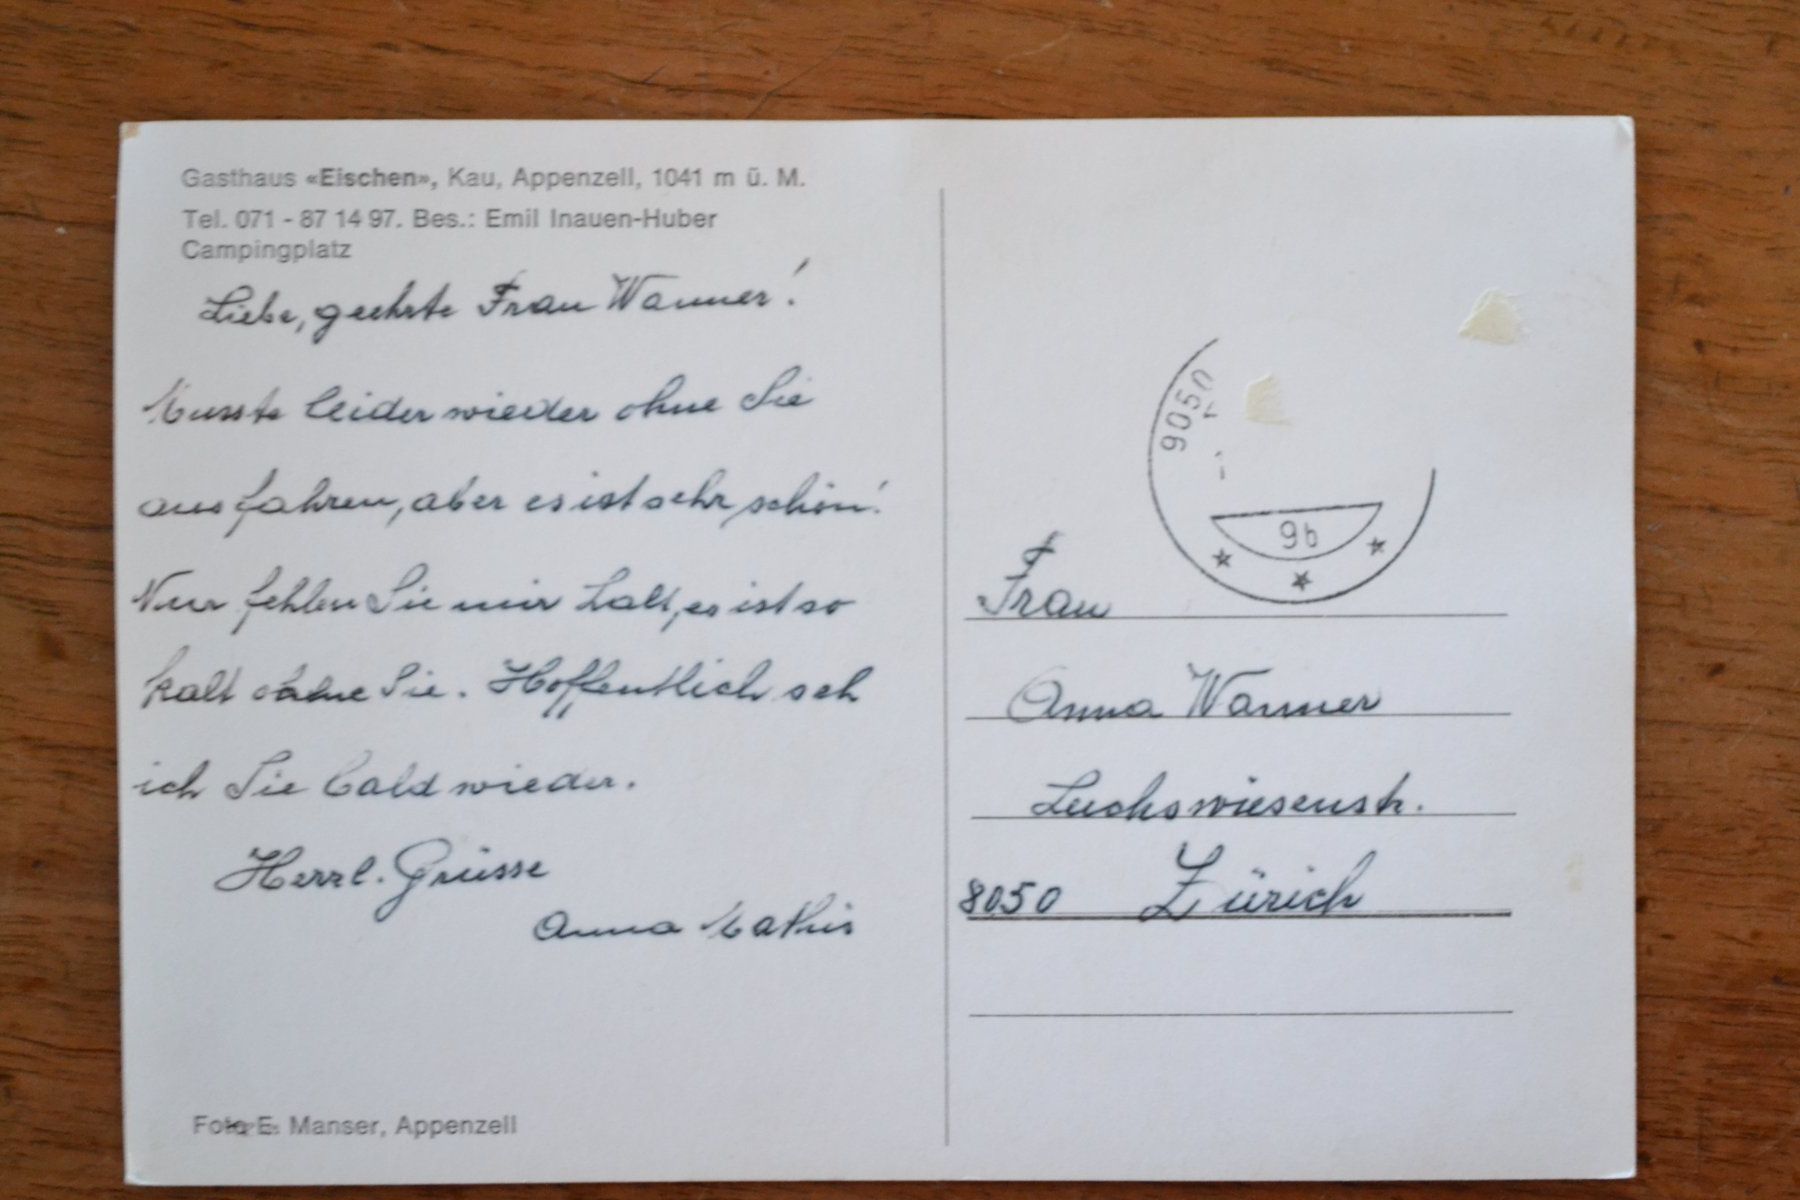 Gasthaus «Eischen», Kau, Appenzell, 1041 m ü. M.
Tel. 071 - 87 14 97. Bes.: Emil Inauen-Huber
Campingplatz
Liebe, geehrte Frau Wanner!
Musste leider wieder ohne Sie
ausfahren, aber es ist sehr schön!
Nur fehlen Sie mir halt, es ist so
kalt ohne Sie. Hoffentlich seh
ich Sie bald wieder.
Herzl. Grüsse
Anna Mathis
Foto E. Manser, Appenzell
9050
9b
Frau
Anna Wanner
Luchswiesenstr.
8050 Zürich